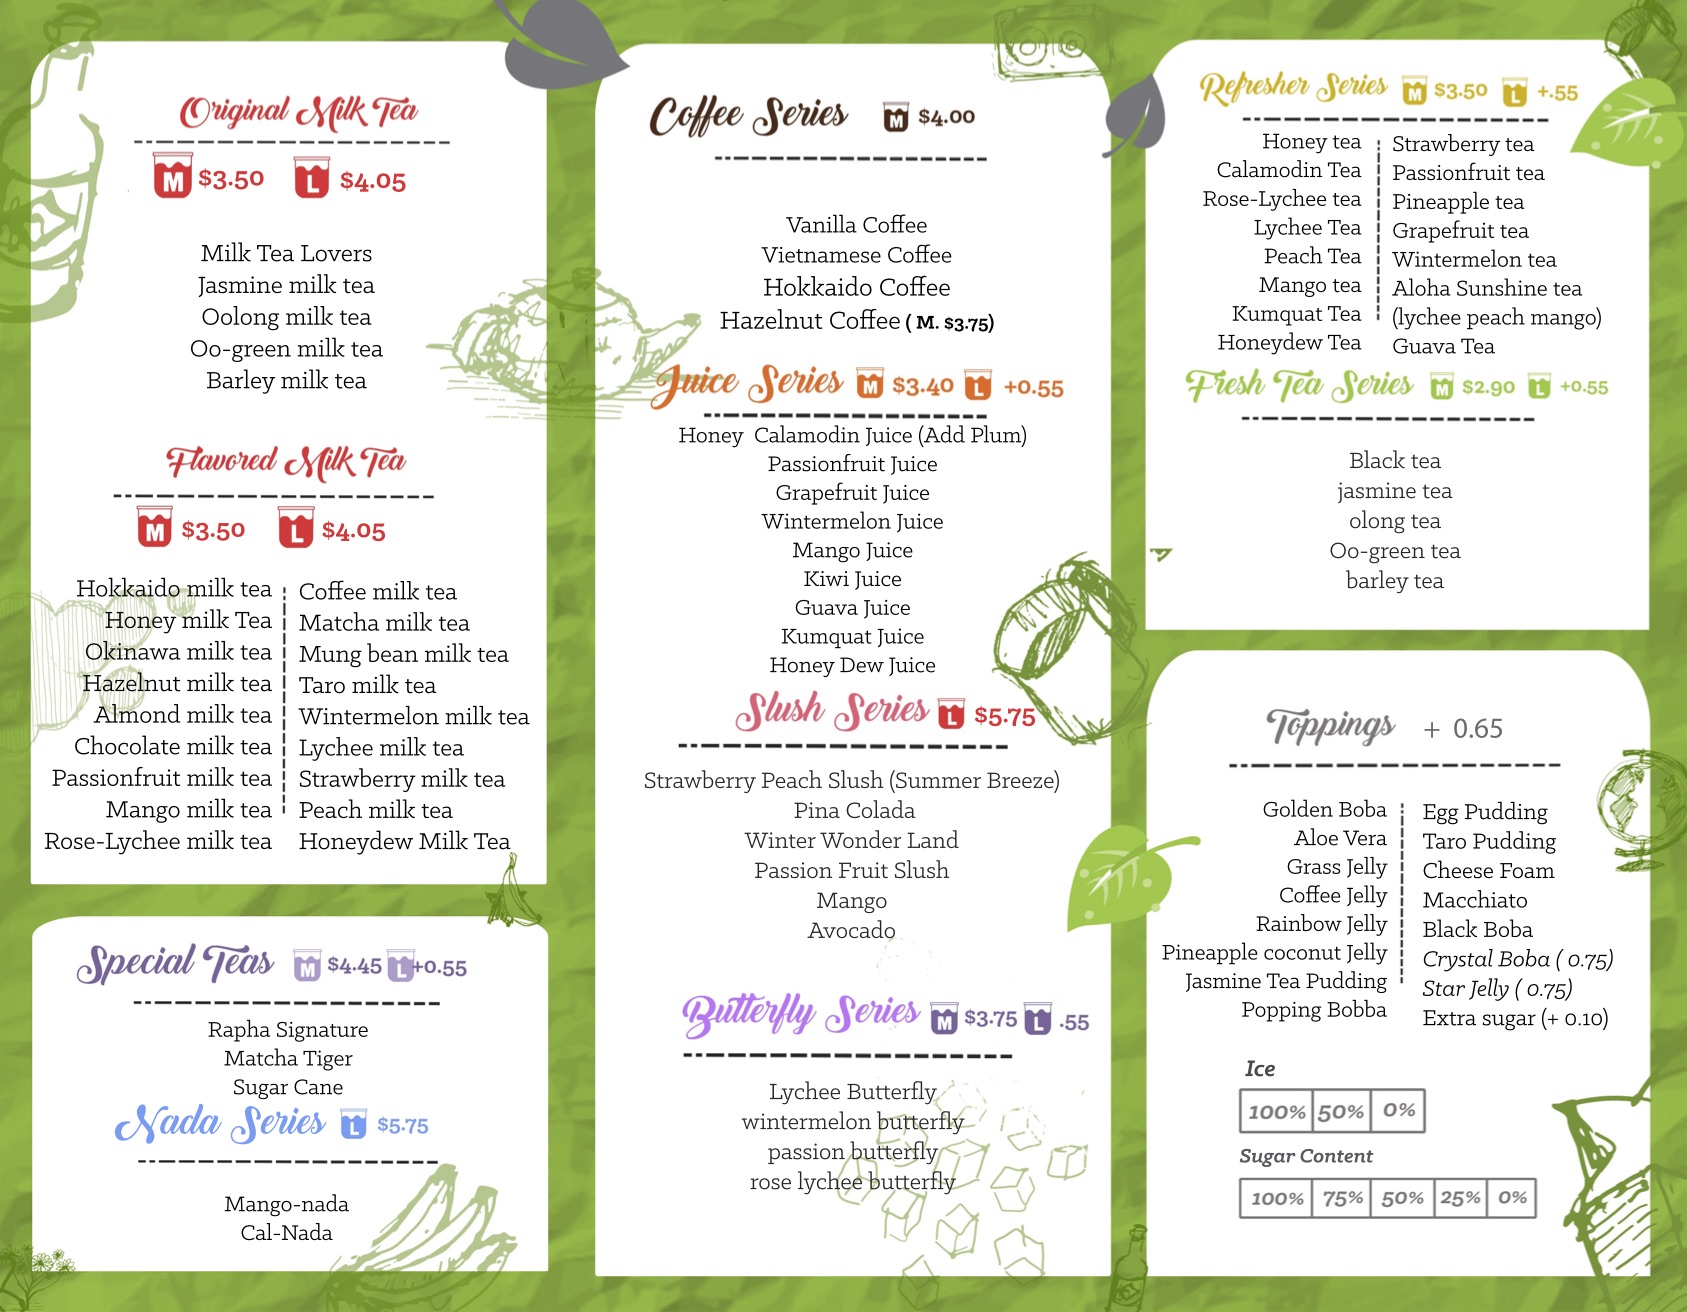 Original Milk Tea
M $3.50 L $4.05
Milk Tea Lovers
Jasmine milk tea
Oolong milk tea
Oo-green milk tea
Barley milk tea
Flavored Milk Tea
M $3.50 L $4.05
Hokkaido milk tea
Honey milk Tea
Okinawa milk tea
Hazelnut milk tea
Almond milk tea
Chocolate milk tea
Passionfruit milk tea
Mango milk tea
Rose-Lychee milk tea
Coffee milk tea
Matcha milk tea
Mung bean milk tea
Taro milk tea
Wintermelon milk tea
Lychee milk tea
Strawberry milk tea
Peach milk tea
Honeydew Milk Tea
Special Teas M $4.45 L +0.55
Rapha Signature
Matcha Tiger
Sugar Cane
Nada Series L $5.75
Mango-nada
Cal-Nada
Coffee Series M $4.00
Vanilla Coffee
Vietnamese Coffee
Hokkaido Coffee
Hazelnut Coffee ( M. $3.75)
Juice Series M $3.40 L +0.55
Honey Calamodin Juice (Add Plum)
Passionfruit Juice
Grapefruit Juice
Wintermelon Juice
Mango Juice
Kiwi Juice
Guava Juice
Kumquat Juice
Honey Dew Juice
Slush Series L $5.75
Strawberry Peach Slush (Summer Breeze)
Pina Colada
Winter Wonder Land
Passion Fruit Slush
Mango
Avocado
Butterfly Series M $3.75 L .55
Lychee Butterfly
wintermelon butterfly
passion butterfly
rose lychee butterfly
Refresher Series M $3.50 L +.55
Honey tea
Calamodin Tea
Rose-Lychee tea
Lychee Tea
Peach Tea
Mango tea
Kumquat Tea
Honeydew Tea
Strawberry tea
Passionfruit tea
Pineapple tea
Grapefruit tea
Wintermelon tea
Aloha Sunshine tea
(lychee peach mango)
Guava Tea
Fresh Tea Series M $2.90 L +0.55
Black tea
jasmine tea
olong tea
Oo-green tea
barley tea
Toppings + 0.65
Golden Boba
Aloe Vera
Grass Jelly
Coffee Jelly
Rainbow Jelly
Pineapple coconut Jelly
Jasmine Tea Pudding
Popping Bobba
Egg Pudding
Taro Pudding
Cheese Foam
Macchiato
Black Boba
Crystal Boba ( 0.75)
Star Jelly ( 0.75)
Extra sugar (+ 0.10)
Ice
100% 50% 0%
Sugar Content
100% 75% 50% 25% 0%